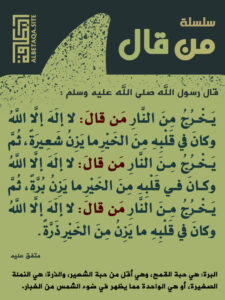 البطاقة
ALBETAQA.SITE
سلسلة
من قال
قال رسول الله صلى الله عليه وسلم :
يَخْرُجُ مِنَ النَّارِ مَن قالَ: لا إلَهَ إلَّا اللَّهُ
وكانَ في قَلْبِهِ مِنَ الخَيْرِ ما يَزِنُ شَعِيرَةً، ثُمَّ
يَخْرُجُ مِنَ النَّارِ مَن قالَ: لا إلَهَ إلَّا اللَّهُ
وكانَ في قَلْبِهِ مِنَ الخَيْرِ ما يَزِنُ بُرَّةً، ثُمَّ
يَخْرُجُ مِنَ النَّارِ مَن قالَ: لا إلَهَ إلَّا اللَّهُ
وكانَ في قَلْبِهِ ما يَزِنُ مِنَ الخَيْرِ ذَرَّةً.
متفق عليه
البرة: هي حبة القمح، وهي أقل من حبة الشعير، والذرة: هي النملة
الصغيرة، أو هي الواحدة مما يظهر في ضوء الشمس من الغبار.